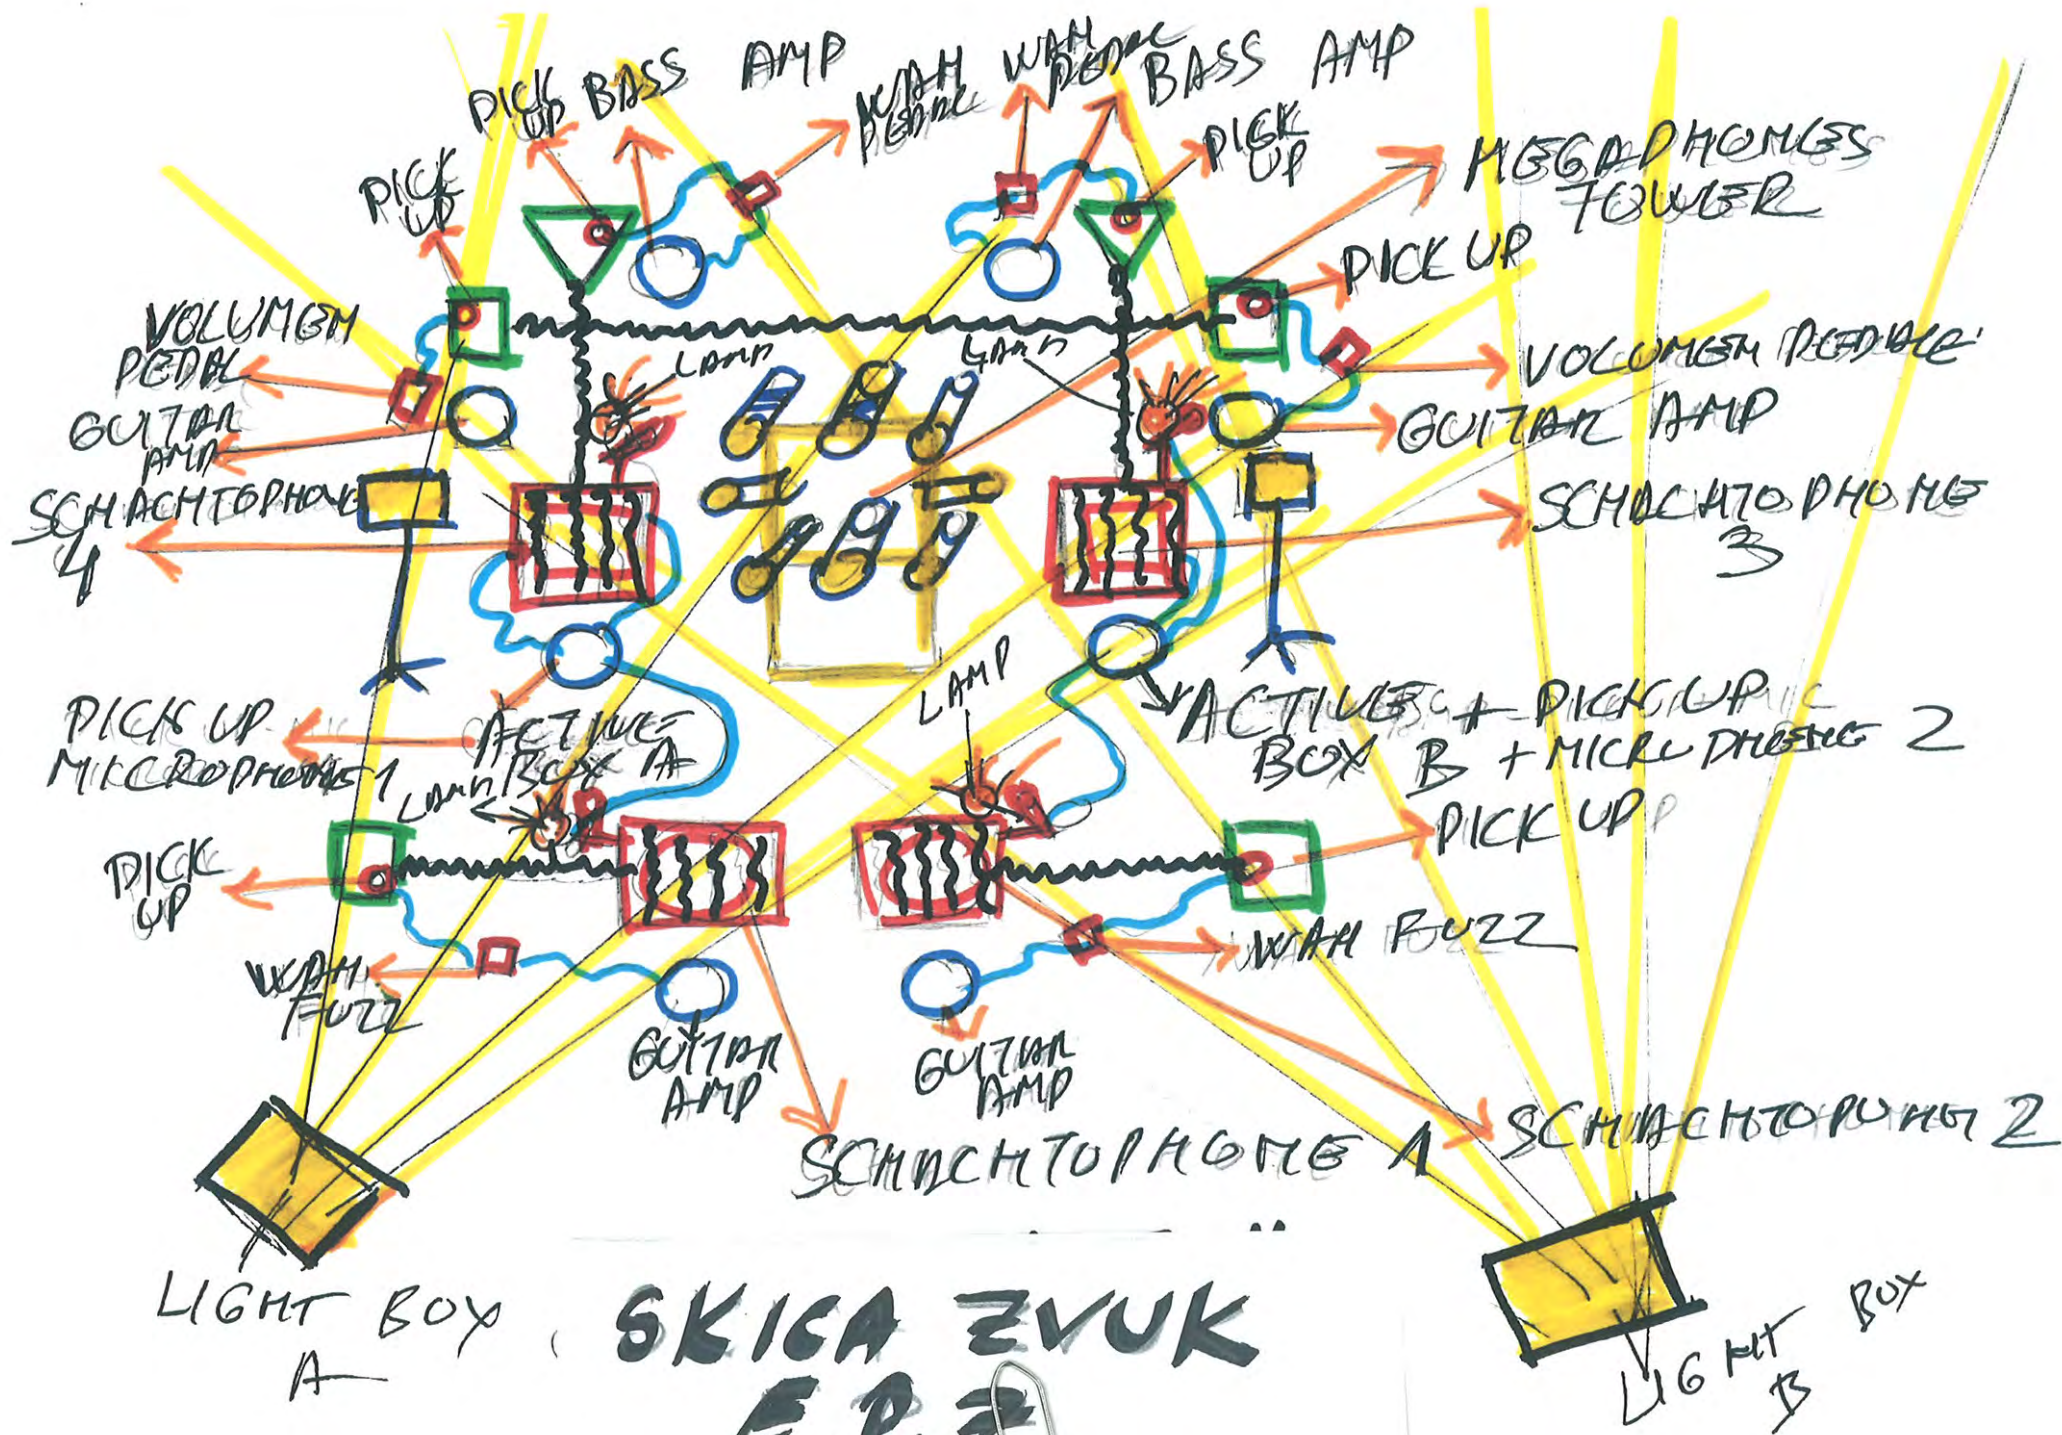 PICK
UP
BASS AMP
WAH
PEDAL
WAH
PEDAL
BASS AMP
PICK
UP
PICK
UP
MEGAPHONES
TOWER
PICK UP
VOLUMEN
PEDAL
GUITAR
AMP
LAMP
LAMP
VOLUMEN PEDALE
GUITAR AMP
SCHACHTOPHONE
4
SCHACHTOPHONE
3
PICK UP
MICROPHONE 1
ACTIVE
BOX A
LAMP
LAMP
ACTIVE + PICK UP
BOX B + MICROPHONE 2
PICK
UP
PICK UP
WAH
FUZZ
WAH FUZZ
GUITAR
AMP
GUITAR
AMP
SCHACHTOPHONE 1
SCHACHTOPHONE 2
LIGHT BOX
A
SKICA ZVUK
LIGHT BOX
B